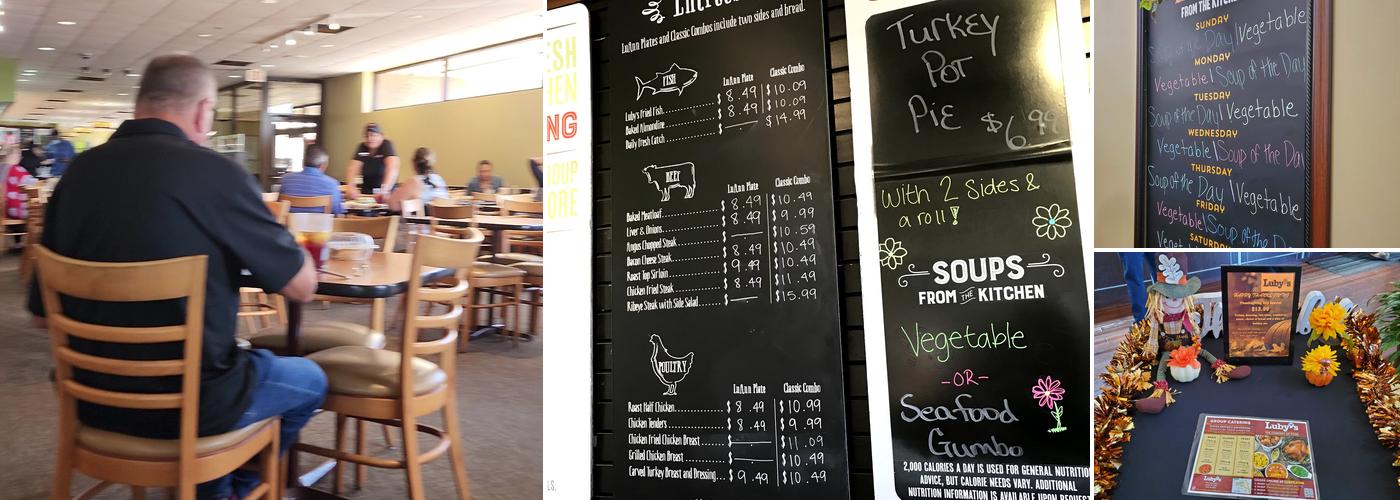 Entrees
LuAnn Plates and Classic Combos include two sides and bread.
FISH
LuAnn Plate Classic Combo
Luby's Fried Fish $8.49 $10.09
Baked Almondine $8.49 $10.09
Daily Fresh Catch $14.99
BEEF
LuAnn Plate Classic Combo
Baked Meatloaf $8.49 $10.49
Liver & Onions $8.49 $9.99
Angus Chopped Steak $10.59
Bacon Cheese Steak 8.49 $10.49
Roast Top Sirloin $9.49 $10.49
Chicken Fried Steak $8.49 $11.49
Ribeye Steak with Side Salad $15.99
POULTRY
LuAnn Plate Classic Combo
Roast Half Chicken $8.49 $10.99
Chicken Tenders $8.49 $9.99
Chicken Fried Chicken Breast $11.09
Grilled Chicken Breast $10.49
Carved Turkey Breast and Dressing $9.49 $10.49
Turkey
Pot
Pie $6.99
With 2 Sides &
a roll!
SOUPS
FROM THE KITCHEN
Vegetable
-OR-
Seafood
Gumbo
2,000 CALORIES A DAY IS USED FOR GENERAL NUTRITION
ADVICE, BUT CALORIE NEEDS VARY. ADDITIONAL
NUTRITION INFORMATION IS AVAILABLE UPON REQUEST
FROM THE KITCHEN
SUNDAY
Soup of the Day | Vegetable
MONDAY
Vegetable | Soup of the Day
TUESDAY
Soup of the Day | Vegetable
WEDNESDAY
Vegetable | Soup of the Day
THURSDAY
Soup of the Day | Vegetable
FRIDAY
Vegetable | Soup of the Day
SATURDAY
Luby's
HAPPY THANKSGIVING
$13.99
GROUP CATERING
Luby's